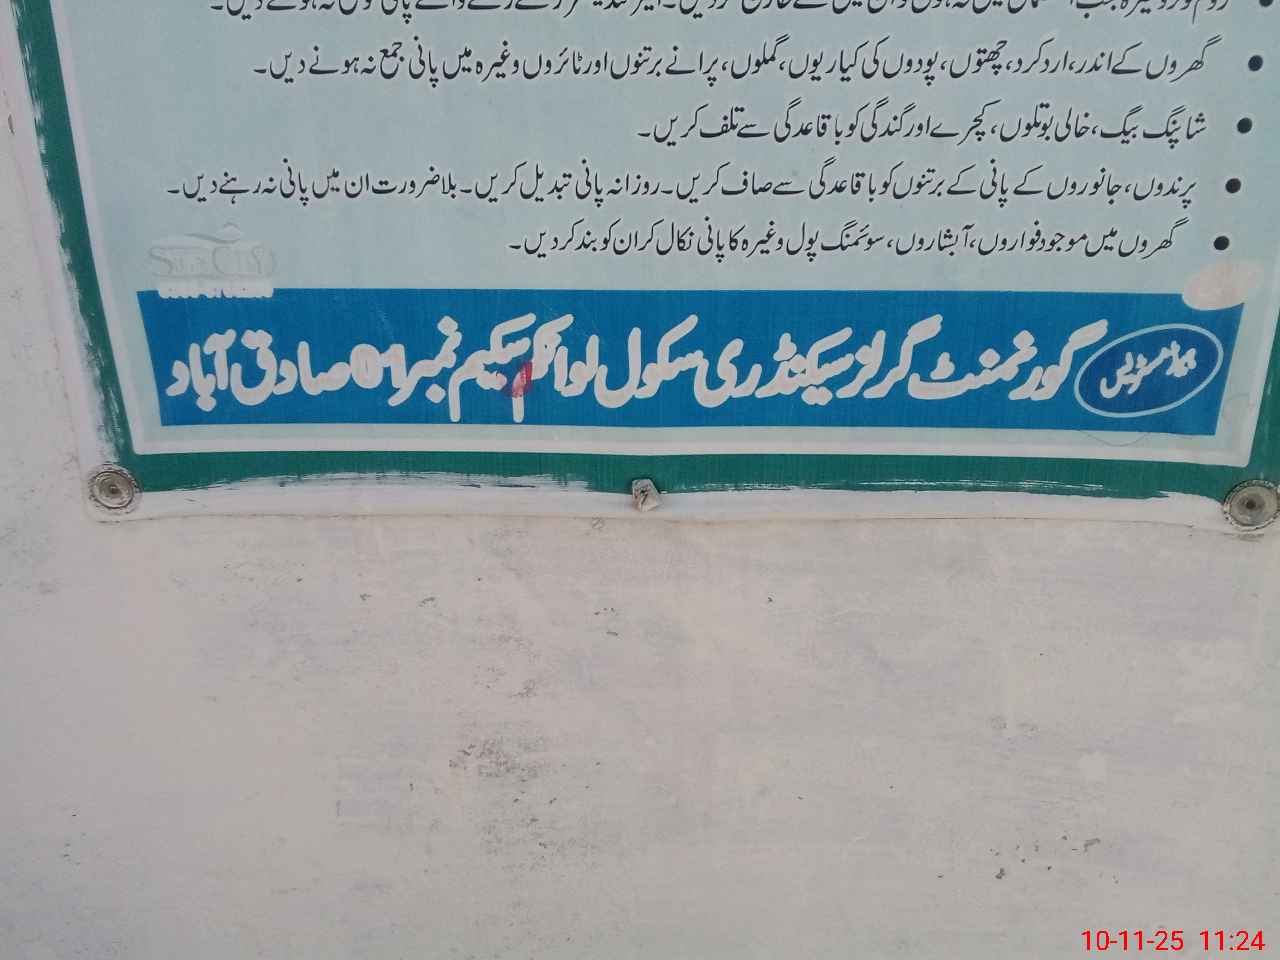 گھروں کے اندر، اردگرد، چھتوں، پودوں کی کیاریوں، گملوں، پرانے برتنوں اور ٹائروں وغیرہ میں پانی جمع نہ ہونے دیں۔
شاپنگ بیگ، خالی بوتلوں، کچرے اور گندگی کو باقاعدگی سے تلف کریں۔
پرندوں، جانوروں کے پانی کے برتنوں کو باقاعدگی سے صاف کریں۔ روزانہ پانی تبدیل کریں۔ بلاضرورت ان میں پانی نہ رہنے دیں۔
گھروں میں موجود فواروں، آبشاروں، سوئمنگ پول وغیرہ کا پانی نکال کر ان کو بند کر دیں۔
ہیڈ مسٹریس
گورنمنٹ گرلز سیکنڈری سکول لو انکم سکیم نمبر 01 صادق آباد
10-11-25 11:24